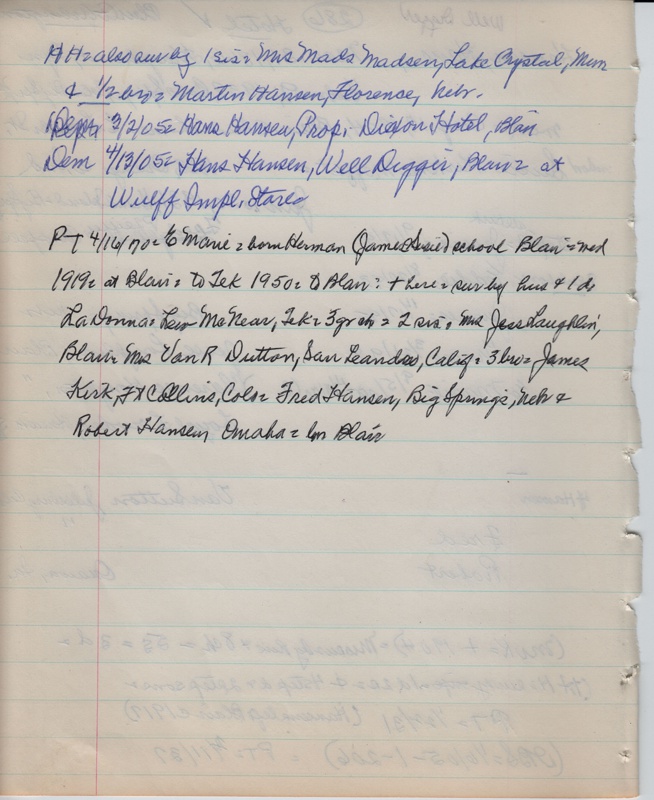 HH = also sur by 1 sis = Mrs Mads Madsen, Lake Crystal, Minn
& 1/2 bro = Martin Hansen, Florence, Nebr.
Dem 3/2/05 = Hans Hansen, Prop. Dixon Hotel, Blair
Dem 4/13/05 = Hans Hansen, Well Digger, Blair = at
Wulff Impl. Store
PT 4/16/70 = Marie = born Herman (James ) school Blair = md
1919 = at Blair = to Tek 1950 = to Blair = + here = sur by hus & 1 da
LaDonna = Lew McNear, Tek = 3 gr ch = 2 sis = Mrs Jess Laughlin,
Blair = Mrs Van R Dutton, San Leandro, Calif = 3 bro = James
Kirk, Ft Collins, Colo = Fred Hansen, Big Springs, Nebr &
Robert Hansen, Omaha = bur Blair